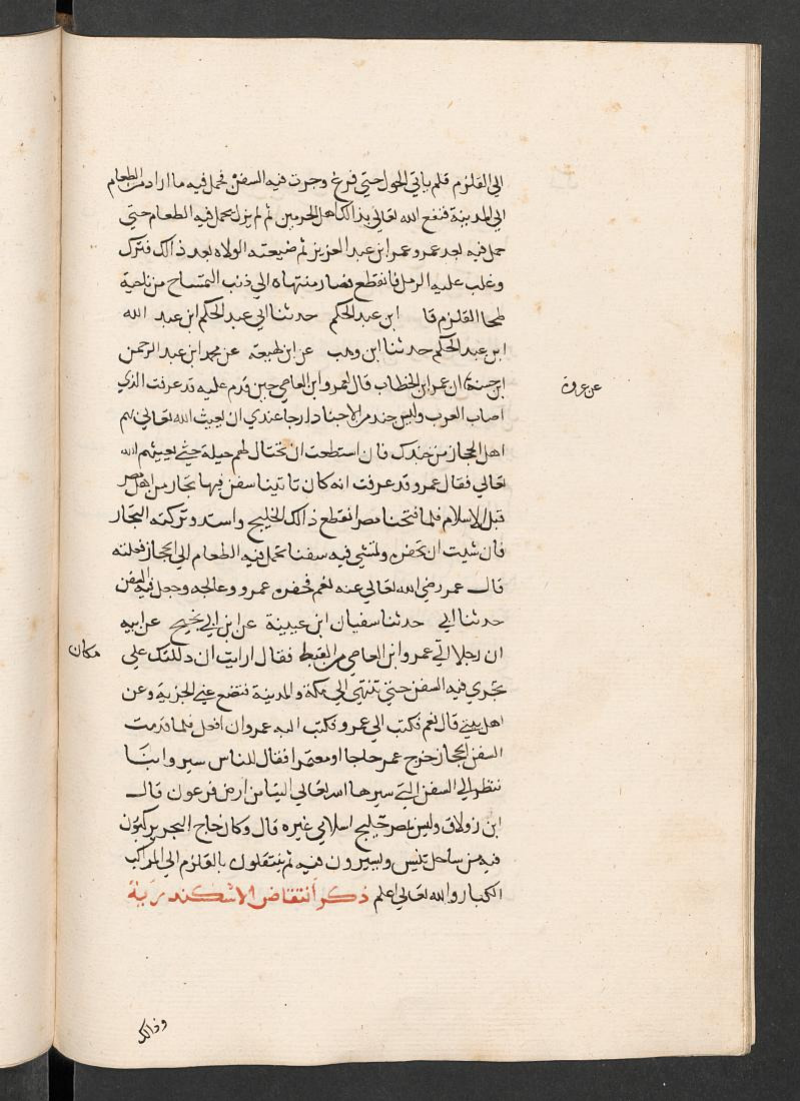 الى القلزم فلم ياتي الحول حتي فرغ وجرت فيه السفن فحمل فيه ما اراد من الطعام
الى المدينة فنفع الله تعالى بذالك اهل الحرمين ثم لم يزل يحمل فيه الطعام حتي
حمل فيه بعد عمرو عمر ابن عبد العزيز ثم ضيعته الولاه بعد ذالك فترك
وغلب عليه الرمل فانقطع فصار منتهاه الي ذنب التمساح من ناحية
طحا القلزم قا ابن عبد الحكم حدثنا ابي عبد الحكم ابن عبد الله
ابن عبد الحكم حدثنا ابن وهب عن ابن لهيعة عن محمد ابن عبد الرحمن
ابن حسنة ان عمر ابن الخطاب قال لعمرو ابن العاصي حين قدم عليه قد عرفت الذي
عن عروة
اصاب العرب وليس جند من الاجناد ارجا عندي ان يغيث الله تعالى بهم
اهل الحجاز من جندك فان استطعت ان تحتال لهم حيلة حتي يغيثهم الله
تعالي فقال عمرو قد عرفت انه كان تاتينا سفن فيها تجار من اهل مصر
قبل الاسلام فلما فتحنا مصر انقطع ذالك الخليج واستد وتركته التجار
فان شيت ان نحفره وننشي فيه سفنا نحمل فيه الطعام الي الحجاز فعلته
قال عمر رضي الله تعالي عنه نعم فحفره عمرو وعالجه وجعل فيه السفن
حدثنا ابي حدثنا سفيان ابن عيينة عن ابن ابي نجيح عن ابيه
ان رجلا اتي عمرو ابن العاصي من القبط فقال ارايت ان دللتك علي
مكان
تجري فيه السفن حتي تنتهي الي مكة والمدينة فتضع عني الجزية وعن
اهل بيتي قال نعم فكتب الي عمر فكتب اليه عمر وان افعل فلما قدمت
السفن الحجاز خرج عمر حاجا او معتمرا فقال للناس سيروا بنا
ننظر الي السفن التي سيرها الله تعالي الينا من ارض فرعون قال
ابن زولاق وليس بمصر خليج اسلامي غيره قال وكان حاج البحر يركبون
فيه من ساحل تنيس ويسيرون فيه ثم ينتقلون بالقلزم الي المراكب
الكبار والله تعالي اعلم ذكر انتقاض الاسكندرية
وذالك